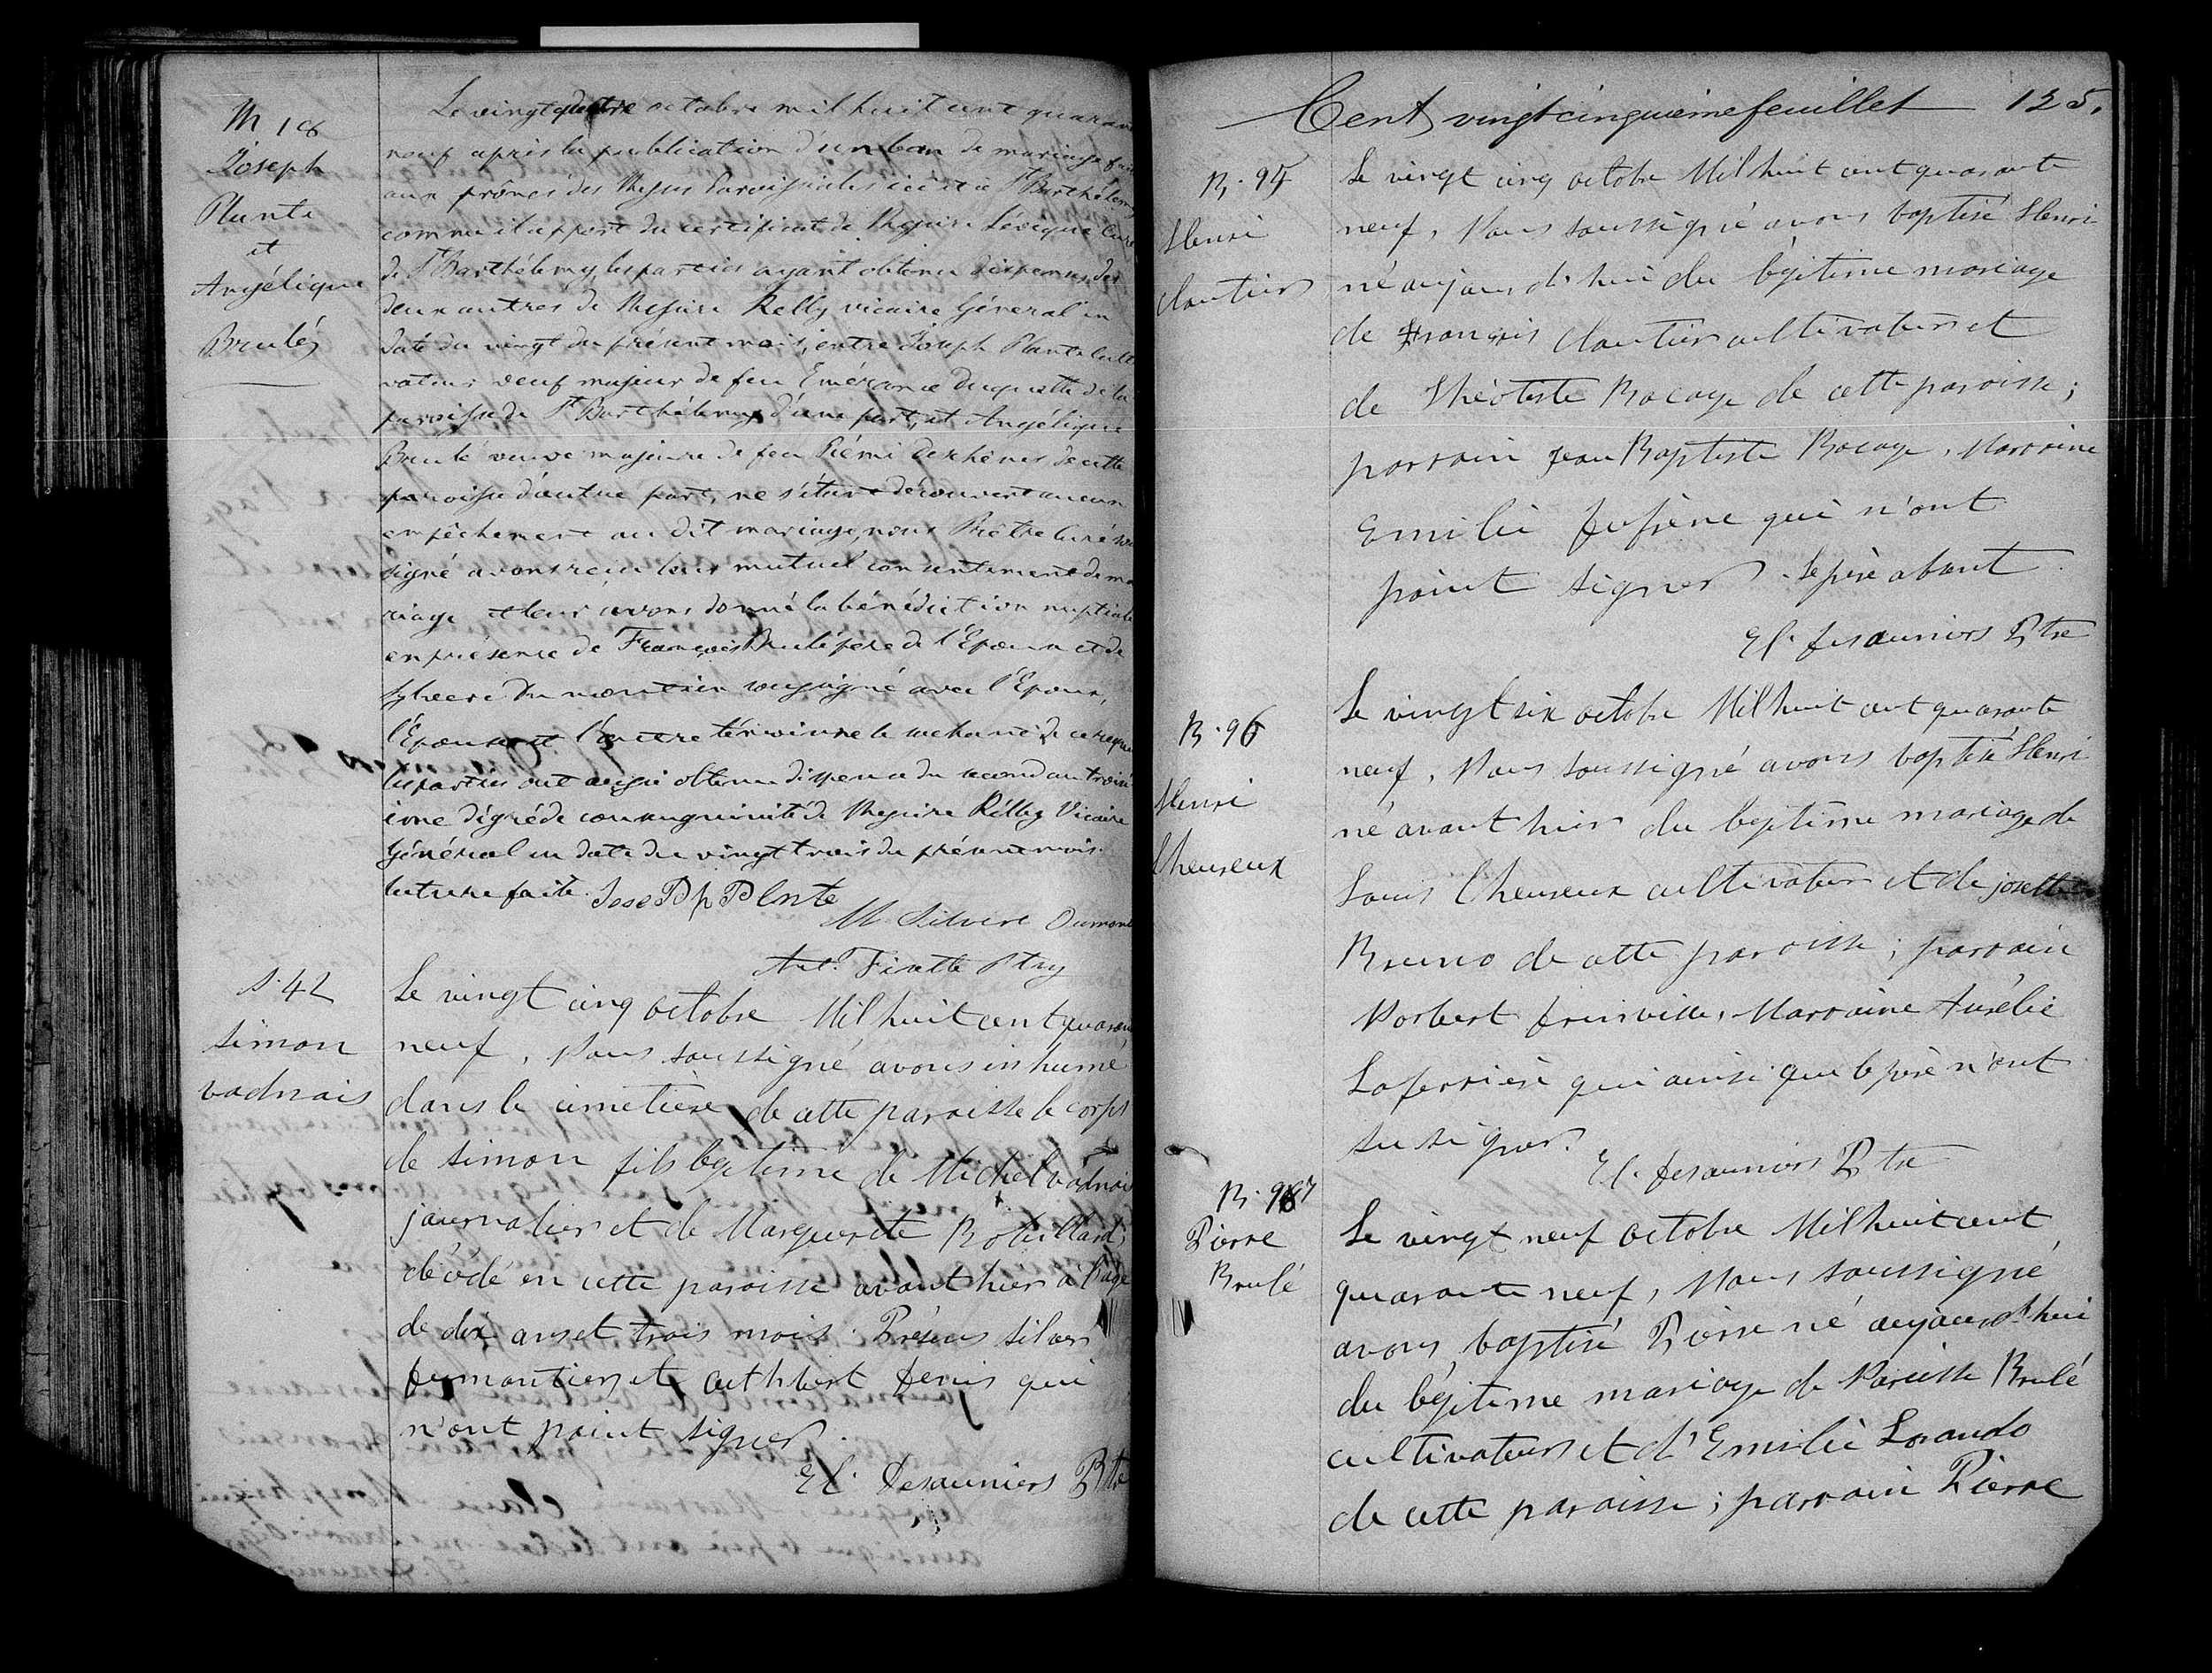 M 18
Joseph
Plante
et
Angélique
Brulé
Le vingt quatre octobre mil huit cent quaran
neuf après la publication d'un ban de mariage
aux prônes des Messes Paroissiales ici et à St Barthélemy
comme il appert du certificat de Messire Lévêque Curé
de St Barthélemy, les parties ayant obtenu dispense des
deux autres de Messire Kelly vicaire Général en
date du vingt du présent mois, entre Joseph Plante Culti
vateur veuf majeur de feu Emérance Duquette de la
paroisse de St Barthélemy d'une part, et Angélique
Brulé veuve majeure de feu Rémi Deschênes de cette
paroisse d'autre part, ne s'étant découvert aucun
empêchement au dit mariage, nous Prêtre Curé sous
signé avons reçu leur mutuel consentement de ma
riage et leur avons donné la bénédiction nuptiale
en présence de François Brulé père de l'Epouse et de
Sylvère Dumontier soussigné avec l'Epoux,
l'Epouse et l'autre témoin ne le sachant de ce requis
les parties ont aussi obtenu dispense du second au troisi
ème dégré de consanguinité de Messire Kelly Vicaire
Général en date du vingt trois du présent mois.
lecture faite. JosePh PLnte
M Silvere Dumont
Ant. Fisette Ptre
S. 42
Simon
vadnais
Le vingt cinq octobre Mil huit cent quaran
neuf, Nous soussigné avons inhumé
dans le cimetière de cette paroisse le corps
de simon fils legitime de Michel vadnais
journalier et de Marguerite Robillard,
décédé en cette paroisse avant hier à l'âge
de dix ans et trois mois. Présens silver
dumontier et cuthbert denis qui
n'ont point signer.
El. Desauniers Ptre
Cent vingt cinquième feuillet 125.
B. 95
Henri
cloutier
Le vingt cinq octobre Mil huit cent quarante
neuf, Nous soussigné avons baptisé Henri
né aujourd'hui du légitime mariage
de François cloutier cultivateur et
de Théotiste Bocage de cette paroisse;
parrain jean Baptiste Bocage, Marraine
Emilie dufrène qui n'ont
point signer. Le père absent.
El. desauniers Ptre
B. 96
Henri
lheureux
Le vingt six octobre Mil huit cent quarante
neuf, Nous soussigné avons baptisé Henri
né avant hier du legitime mariage de
Louis lheureux cultivateur et de josette
Bruno de cette paroisse; parrain
Norbert drinville, Marraine Aurélie
Laferrière qui ainsi que le père n'ont
su signer.
El. desauniers Ptre
B. 97
Pierre
Brulé
Le vingt neuf octobre Mil huit cent
quarante neuf, Nous soussigné
avons baptisé Pierre né aujourd'hui
du légitime mariage de Narcisse Brulé
cultivateur et d'Emilie Lorando
de cette paroisse; parrain Pierre